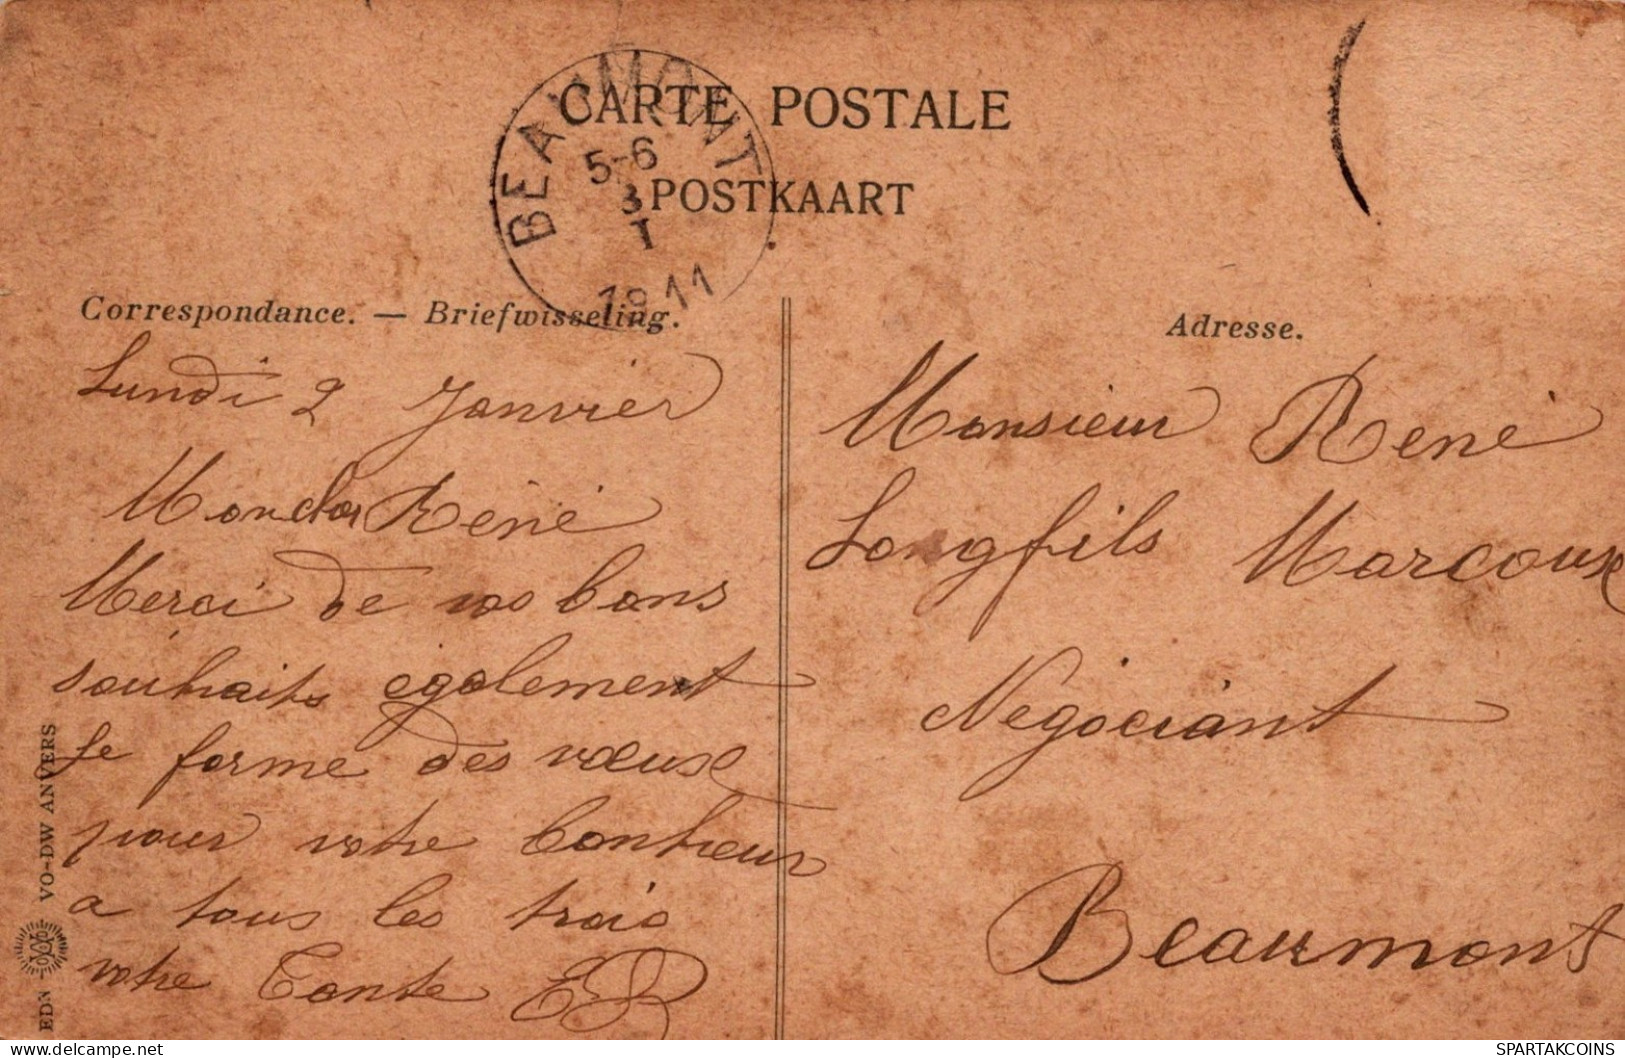 CARTE POSTALE
POSTKAART
BEAUMONT
5-6
3
I
1911
Correspondance. — Briefwisseling.
Adresse.
Lundi 2 Janvier
Mon cher René
Merci de vos bons
souhaits également
Je forme des vœux
pour votre bonheur
a tous les trois
votre Tante ER
Monsieur René
Longfils Marcoux
Négociant
Beaumont
EDN VO-DW ANVERS
delcampe.net
SPARTAKCOINS